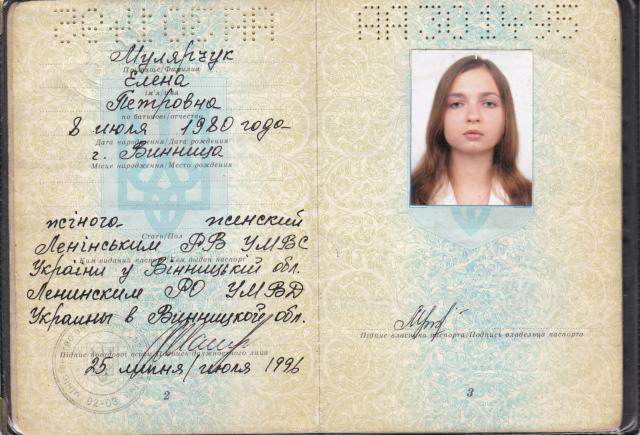 Мулярчук
Прізвище/Фамилия
Елена
ім'я/имя
Петровна
по батькові/отчество
8 июля 1980 года
Дата народження/Дата рождения
г. Винница
Місце народження/Место рождения
жіноча женский
Стать/Пол
Ленінським РВ УМВС
Ким виданий паспорт/Кем выдан паспорт
України у Вінницкій обл.
Ленинским РО УМВД
Украины в Винницкой обл.
Підпис посадової особи/Подпись должностного лица
25 липня/июля 1996
2
Підпис власника паспорта/Подпись владельца паспорта
3